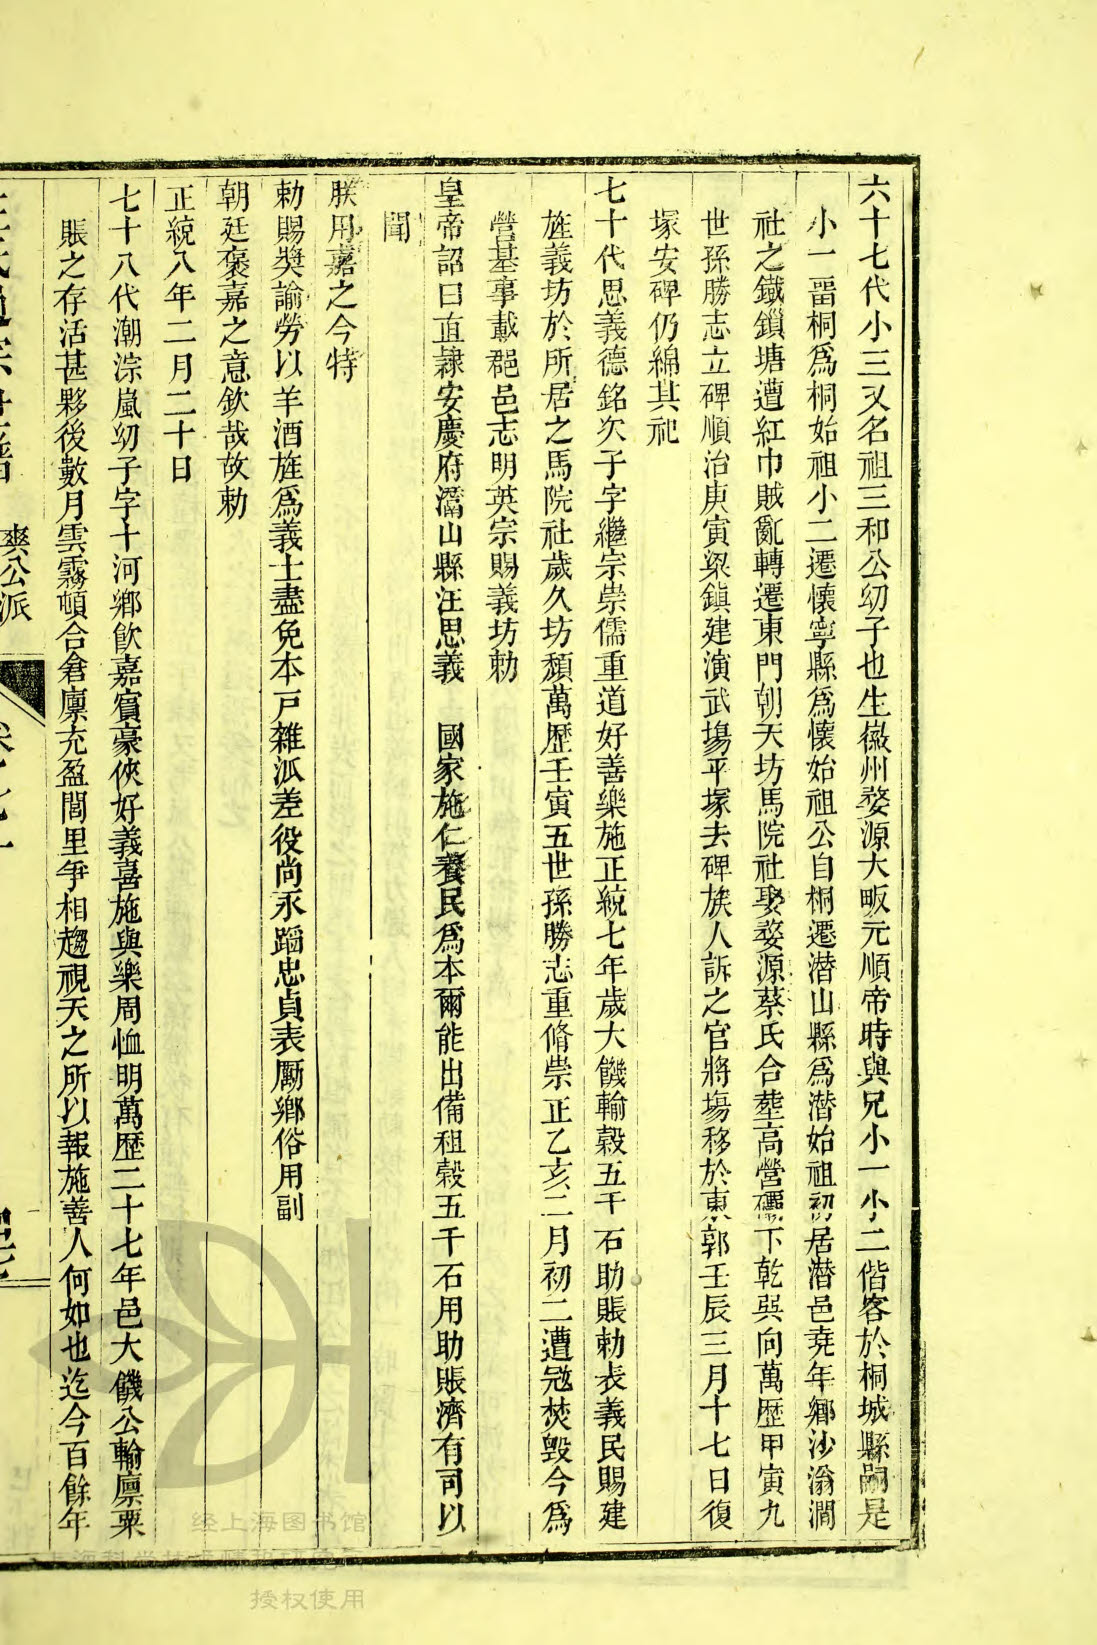 六十七代小三又名祖三和公幼子也生徽州婺源大畈元順帝時與兄小一小二偕客於桐城縣嗣是
小一畱桐爲桐始祖小二遷懷寧縣爲懷始祖公自桐遷潜山縣爲潜始祖初居潜邑堯年鄉沙滃澗
社之鐵鎖塘遭紅巾賊亂轉遷東門朝天坊馬院社娶婺源蔡氏合塟高營下乾巽向萬歴甲寅九
世孫勝志立碑順治庚寅梁鎮建演武塲平塚去碑族人訴之官將塲移於東郭壬辰三月十七日復
塚安碑仍綿其祀
七十代思義德銘次子字繼宗崇儒重道好善樂施正統七年歲大饑輸穀五千石助賑勅表義民賜建
旌義坊於所居之馬院社歲久坊頹萬歴壬寅五世孫勝志重脩崇正乙亥二月初二遭冦焚毁今爲
營基事載郡邑志明英宗賜義坊勅
皇帝詔曰直隸安慶府灊山縣汪思義 國家施仁養民爲本爾能出備租穀五千石用助賑濟有司以
聞
朕用嘉之今特
勅賜奬諭勞以羊酒旌爲義士盡免本戸雜泒差役尚永蹈忠貞表厲鄉俗用副
朝廷褒嘉之意欽哉故勅
正統八年二月二十日
七十八代潮淙嵐幼子字十河鄉飲嘉賓豪俠好義喜施與樂周恤明萬歴二十七年邑大饑公輸廪粟
賑之存活甚夥後數月雲霧頓合倉廪充盈閭里爭相趨視天之所以報施善人何如也迄今百餘年
爽公派
经上海图书馆
授权使用